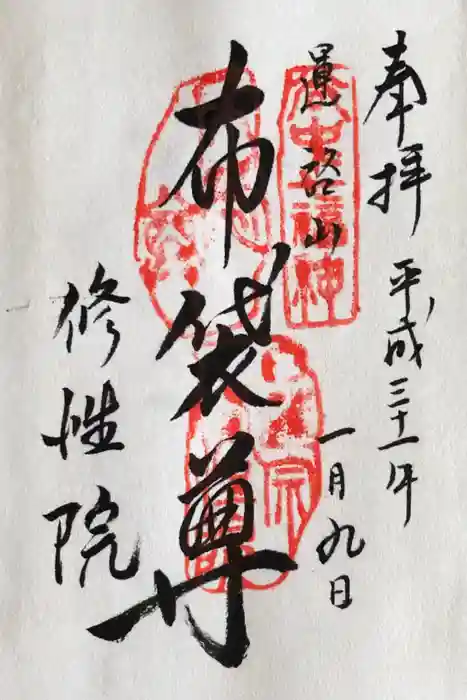 奉拝 平成三十一年
一月九日
運啓山
布袋尊
修性院